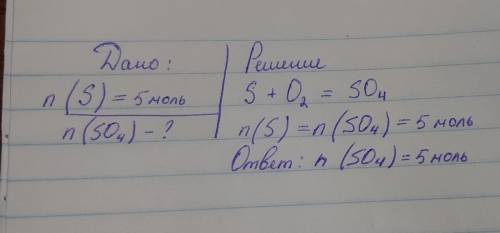 Дано:
n (S) = 5 моль
n (SO₄) - ?
Решение
S + O₂ = SO₄
n(S) = n(SO₄) = 5 моль
Ответ: n (SO₄) = 5 моль